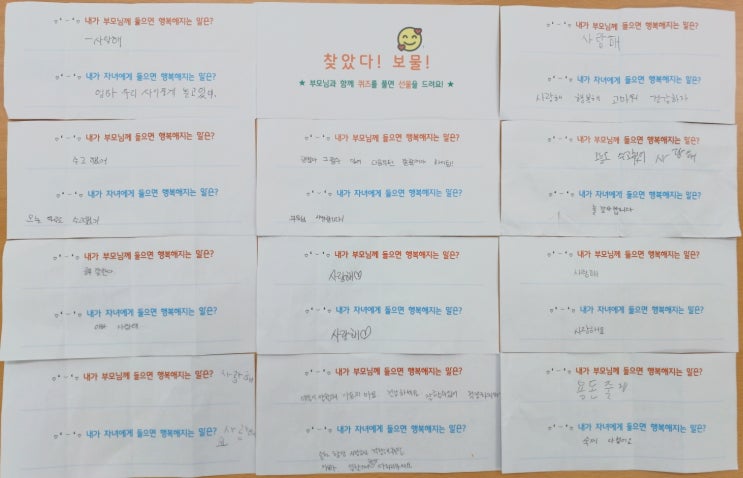 내가 부모님께 들으면 행복해지는 말은?
사랑해
내가 자녀에게 들으면 행복해지는 말은?
엄마 우리 사이좋게 놀고있어.
찾았다! 보물!
★ 부모님과 함께 퀴즈를 풀면 선물을 드려요! ★
내가 부모님께 들으면 행복해지는 말은?
사랑해
내가 자녀에게 들으면 행복해지는 말은?
사랑해 행복해 고마워 건강하자
내가 부모님께 들으면 행복해지는 말은?
수고 했어
내가 자녀에게 들으면 행복해지는 말은?
오늘 하루도 수고했어
내가 부모님께 들으면 행복해지는 말은?
괜찮아 그럴수 있어
내가 자녀에게 들으면 행복해지는 말은?
내가 부모님께 들으면 행복해지는 말은?
오늘도 수고했어 사랑해
내가 자녀에게 들으면 행복해지는 말은?
늘 감사합니다
내가 부모님께 들으면 행복해지는 말은?
잘한다.
내가 자녀에게 들으면 행복해지는 말은?
아빠 사랑해
내가 부모님께 들으면 행복해지는 말은?
사랑해♡
내가 자녀에게 들으면 행복해지는 말은?
사랑해♡
내가 부모님께 들으면 행복해지는 말은?
사랑해
내가 자녀에게 들으면 행복해지는 말은?
사랑해요
내가 부모님께 들으면 행복해지는 말은? 사랑해
내가 자녀에게 들으면 행복해지는 말은? 사랑해
요
내가 부모님께 들으면 행복해지는 말은?
건강하세요
내가 자녀에게 들으면 행복해지는 말은?
내가 부모님께 들으면 행복해지는 말은?
용돈 줄게
내가 자녀에게 들으면 행복해지는 말은?
숙제 다했어요